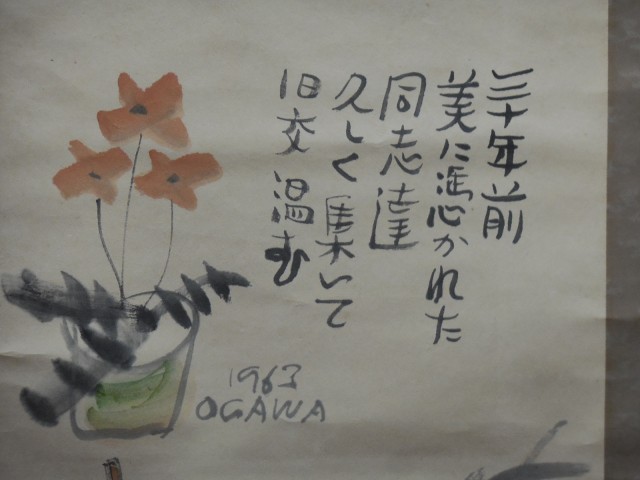 三十年前
美に憑かれた
同志達
久しく集いて
旧交温む
1963
OGAWA